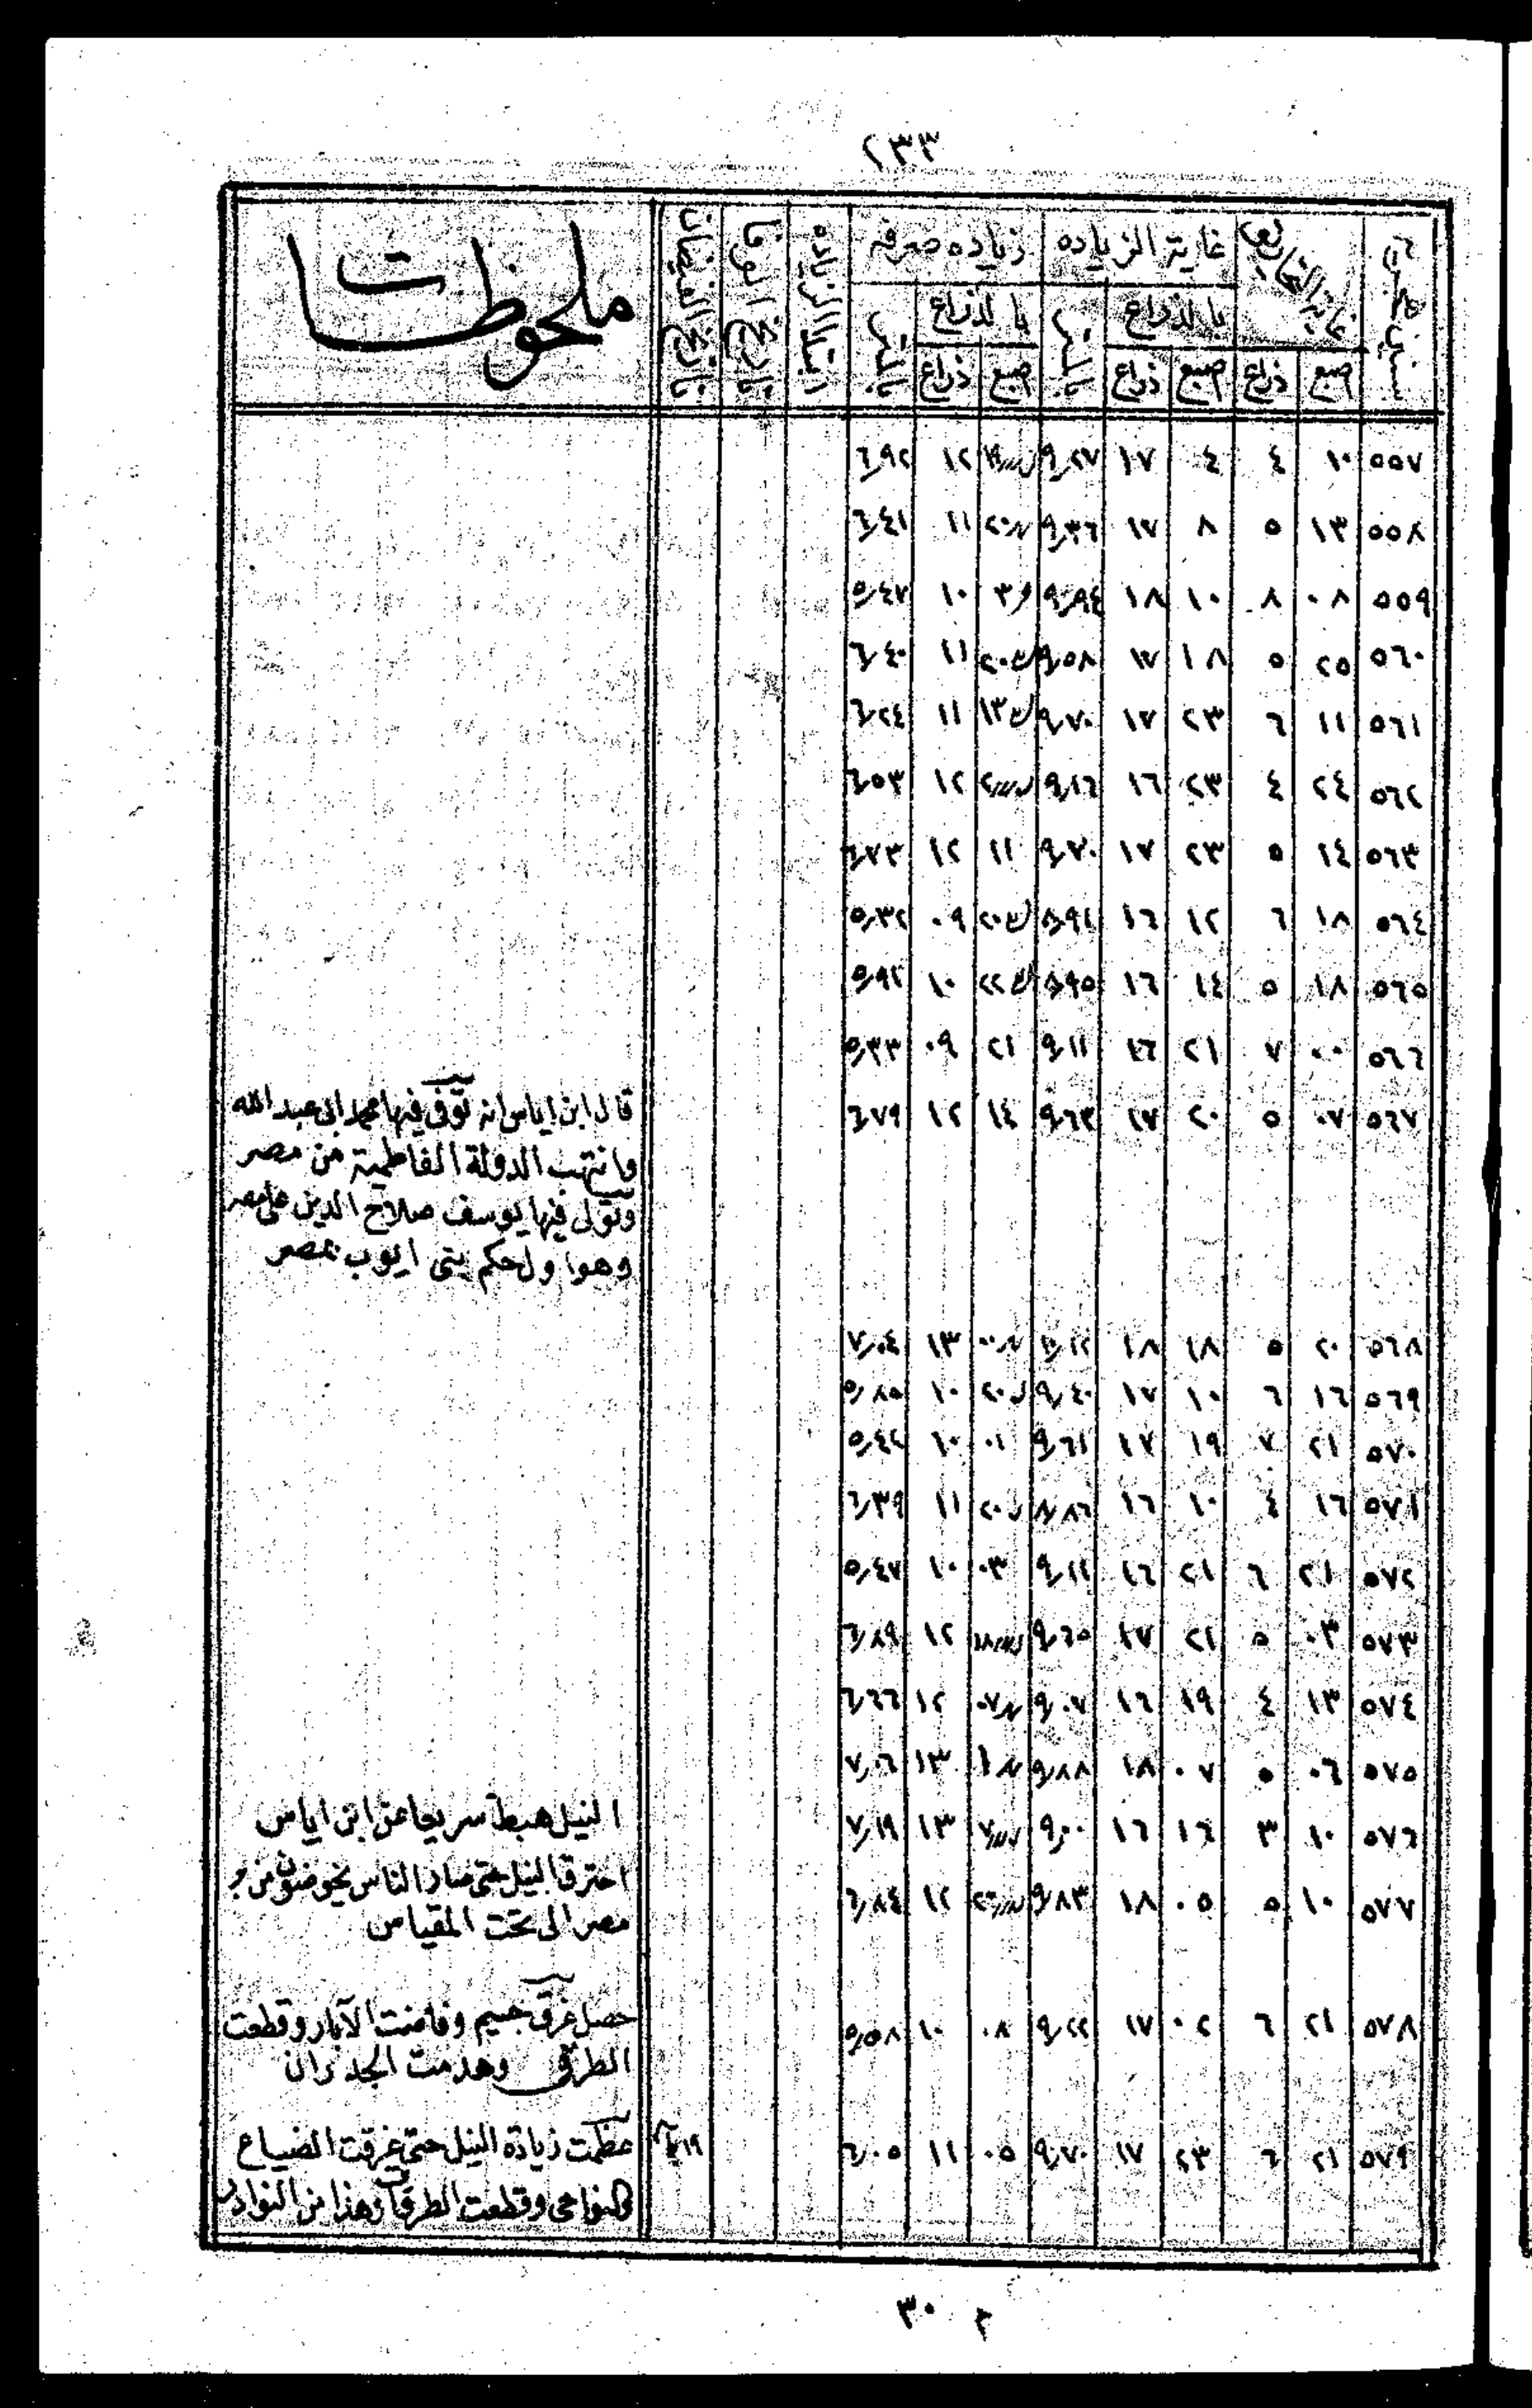 ٢٣٣
سنين هجرية | غاية التحاريق | غاية الزيادة | زيادة صرفه | ابتدا الزيادة | تاريخ الوفا | تاريخ الفيضان | ملحوظات
بالذراع | بالمتر | بالذراع | بالمتر
اصبع | ذراع | اصبع | ذراع | اصبع | ذراع
٥٥٧ | ١٠ | ٤ | ٤ | ١٧ | ٩,٢٧ | ١٢ | ٦,٩٢
٥٥٨ | ١٣ | ٥ | ٨ | ١٧ | ٩,٣٦ | ١١ | ٦,٤١
٥٥٩ | ٠٨ | ٨ | ١٠ | ١٨ | ٩,٩٤ | ١٠ | ٥,٤٧
٥٦٠ | ٢٥ | ٥ | ١٨ | ١٧ | ٩,٥٨ | ١١ | ٦,٤٠
٥٦١ | ١١ | ٦ | ٢٣ | ١٧ | ٩,٧٠ | ١١ | ٦,٢٤
٥٦٢ | ٢٤ | ٤ | ٢٣ | ١٦ | ٩,١٦ | ١٢ | ٦,٥٣
٥٦٣ | ١٤ | ٥ | ٢٣ | ١٧ | ٩,٧٠ | ١١ | ١٢ | ٦,٧٣
٥٦٤ | ١٨ | ٦ | ١٢ | ١٦ | ٨,٩١ | ٠٩ | ٥,٣٢
٥٦٥ | ١٨ | ٥ | ١٤ | ١٦ | ٨,٩٥ | ١٠ | ٥,٩٢
٥٦٦ | ٢٠ | ٧ | ٢١ | ١٦ | ٩,١١ | ٢١ | ٠٩ | ٥,٣٣
٥٦٧ | ٠٧ | ٥ | ٢٠ | ١٧ | ٩,٦٣ | ١٤ | ١٢ | ٦,٧٩ | قال ابن اياس انه توفى فيها محمد ابى عبد الله
وانتهب الدولة الفاطمية من مصر
وتولى فيها يوسف صلاح الدين على مصر
وهو اول حكم بنى ايوب بمصر
٥٦٨ | ٢٠ | ٥ | ١٨ | ١٨ | ١٣ | ٧,٠٤
٥٦٩ | ١٦ | ٦ | ١٠ | ١٧ | ٩,٤٠ | ١٠ | ٥,٨٥
٥٧٠ | ٢١ | ٧ | ١٩ | ١٧ | ٩,٦١ | ٠١ | ١٠ | ٥,٤٢
٥٧١ | ١٦ | ٤ | ١٠ | ١٦ | ٨,٨٦ | ١١ | ٦,٣٩
٥٧٢ | ٢١ | ٦ | ٢١ | ١٦ | ٩,١١ | ٠٣ | ١٠ | ٥,٤٧
٥٧٣ | ٠٣ | ٥ | ٢١ | ١٧ | ٩,٦٥ | ١٢ | ٦,٨٩
٥٧٤ | ١٣ | ٤ | ١٩ | ١٦ | ٩,٠٧ | ١٢ | ٦,٦٦
٥٧٥ | ٠٦ | ٥ | ٠٧ | ١٨ | ٩,٨٨ | ١٣ | ٧,٠٦
٥٧٦ | ١٠ | ٣ | ١٦ | ١٦ | ٩,٠٠ | ١٣ | ٧,١٩ | النيل هبط سريعا عن ابن اياس
٥٧٧ | ١٠ | ٥ | ٠٥ | ١٨ | ٩,٨٣ | ١٢ | ٦,٨٤ | احترق النيل حتى صار الناس يخوضون من بر
مصر الى تحت المقياس
٥٧٨ | ٢١ | ٦ | ٠٢ | ١٧ | ٩,٢٢ | ٠٨ | ١٠ | ٥,٥٨ | حصل غرق جسيم وفاضت الآبار وقطعت
الطرق وهدمت الجدران
٥٧٩ | ٢١ | ٦ | ٢٣ | ١٧ | ٩,٧٠ | ٠٥ | ١١ | ٦,٠٥ | ١٩ | عظمت زيادة النيل حتى غرقت الضياع
والنواحى وقطعت الطرقات وهذا من النوادر
٣٠ م